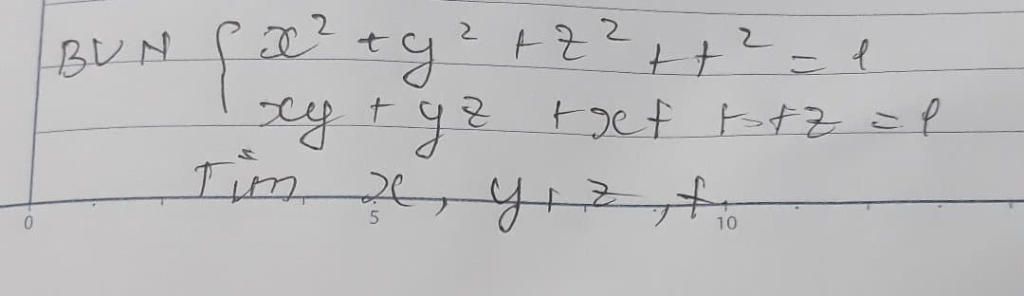 BVN { x² + y² + z² + t² = 1
xy + yz + xt + tz = 1
Tìm x, y, z, t
0 5 10